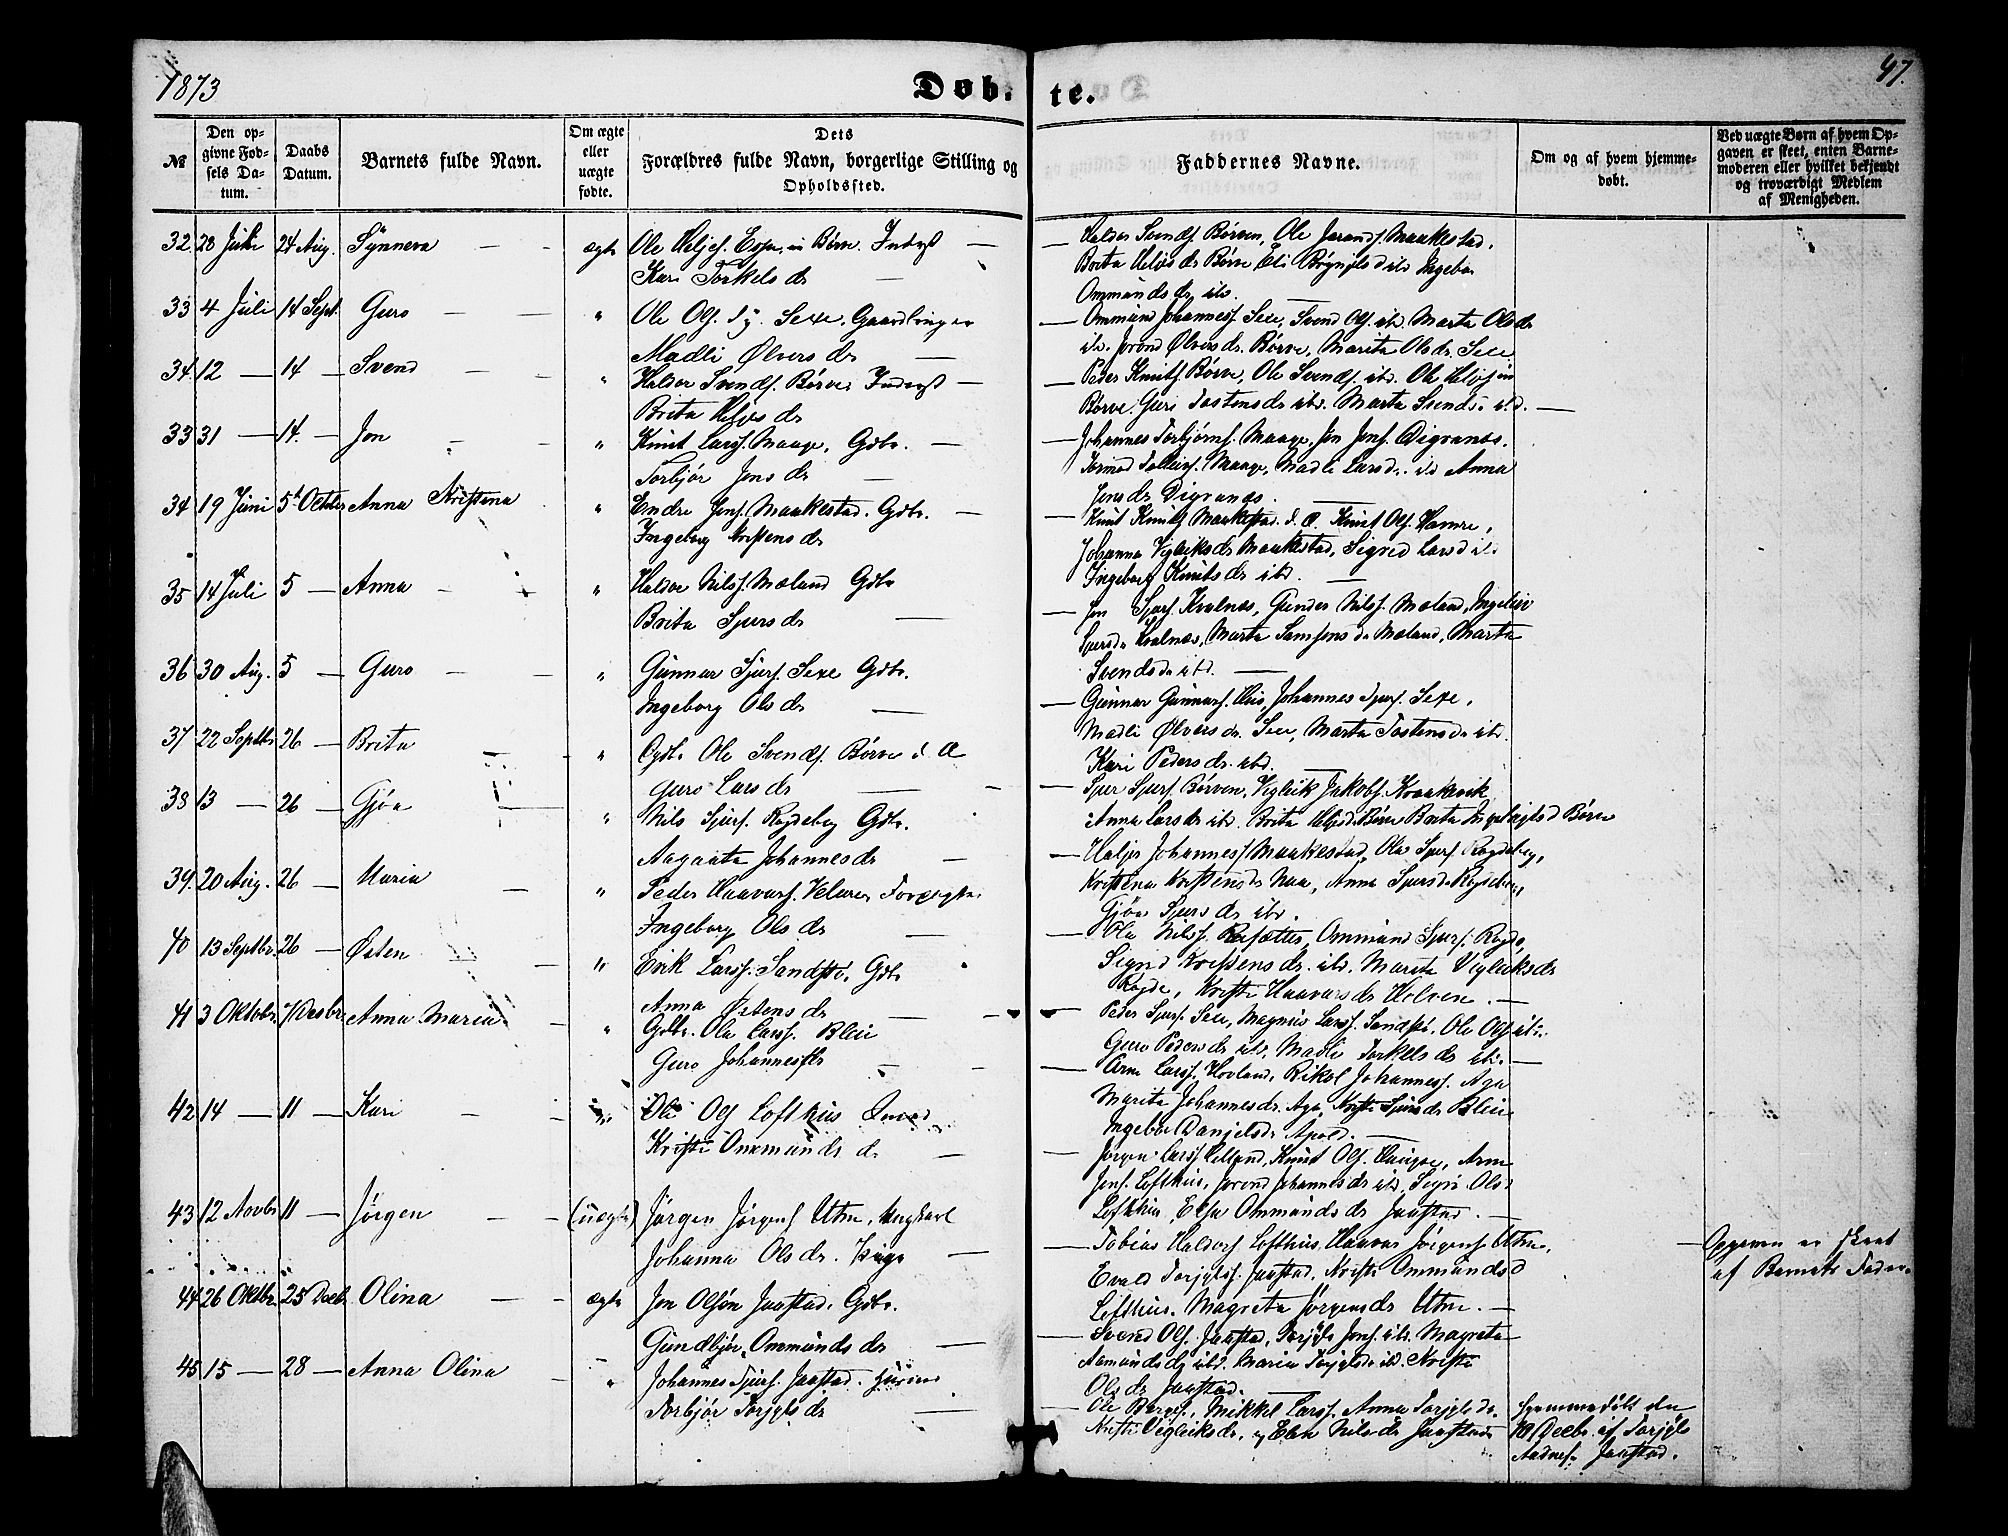 1873
Døb-
te.
47.
№
Den op-
givne Fød-
sels Da-
tum.
Daabs
Datum.
Barnets fulde Navn.
Om ægte
eller
uægte
fødte.
Dets
Forældres fulde Navn, borgerlige Stilling og
Opholdssted.
Faddernes Navne.
Om og af hvem hjemme-
døbt.
Ved uægte Børn af hvem Op-
gaven er skeet, enten Barne-
moderen eller hvilket bekjendt
og troværdigt Medlem
af Menigheden.
32 28 Juli 24 Aug. Synneva — — ægte Ole Heljes. Espe, in Børve. Inderst —
Kari Torkelsdr —
— Haldor Svends. Børven, Ole Jarands. Maakestad,
Brita Heljesdr Børve Eli Brynjelsd ibd Ingebor
Ommundsdr ibd.
33 4 Juli 14 Sept. Guro — — " Ole Ols. Sexe. Gaardbruger
Madli Ølversdr —
— Ommund Johanness. Sexe, Svend Ols. ibd. Marta Olsdr
ibd. Jorond Ølversdr. Børve, Marita Olsdr. Sexe.
34 12 — 14 — Svend — — " Haldor Svends. Børve Inderst —
Brita Heljesdr
— Peder Knuts. Børve, Ole Svends. ibd. Ole Heljes in
Børve. Guri Tostensdr ibd. Marta Svends. ibd. —
33 31 — 14. — Jon — — " Knut Larss. Maage, Gdbr. —
Torbjør Jonsdr —
— Johannes Torbjørns. Maage, Jon Jons. Digranes.
Tormod Tolleivs. Maage, Madli Larsd. ibd Anna
Jonsdr Digranes. —
34 19 Juni 5t Octbr Anna Kristena " Endre Jons. Maakestad. Gdbr. —
Ingeborg Kristensdr
— Knut Knuts Maakestad. d. Æ. Knut Ols. Hamre,
Johanna Vigleiksdr Maakestad, Sigrid Larsd ibd
Ingeborg Knutsdr ibd. —
35 14 Juli 5 — Anna — — " Haldor Nilss. Mæland Gdbr
Brita Sjursdr —
— Jon Sjurs. Kvalnæs, Gunder Nilss. Mæland, Ingelev
Sjursdr Kvalnæs, Marta Samsonsdr Mæland, Marta
Svendsdr ibd. —
36 30 Aug. 5 — Guro — — " Gunnar Sjurs. Sexe Gdbr.
Ingeborg Olsdr —
— Gunnar Gunnars. Hus, Johannes Sjurs. Sexe,
Madli Ølversdr. Sexe, Marta Tostensdr ibd.
Kari Pedersdr. ibd. —
37 22 Septbr 26 — Brita — — " Gdbr Ole Svends. Børve d. Æ
Guro Larsdr — —
— Sjur Sjurs. Børven, Vigleik Jakobs. Kraakevik
Anna Larsdr ibd. Brita Heljesd Børve Brita Børve
38 13 — 26 — Gjøa — " Nils Sjurs. Rogdeberg Gdbr.
Aagaata Johannesdr —
— Heljes Johanness Maakestad, Ola Sjurs. Rogdeberg,
Kristena Kristensdr Naa, Anna Sjursdr Rogdeberg,
Gjøa Sjursdr ibd.
39. 20 Aug. 26 — Maria — " Peder Haavars. Velure
Ingeborg Olsdr —
— Ola Nilss. Reisæter, Ommund Sjurs. Rogde,
Sigrid Kristensdr. ibd. Marita Vigleiksdr
Rogde, Kristi Haavarsdr Helven. —
40 13 Septbr. 26 — Østen — — " Erik Larss. Sandstø, Gdbr
Anna Østensdr — —
— Peder Sjurs. Sexe, Magnus Larss. Sandstø, Ole Ols ibd.
Guro Pedersdr ibd, Madli Torkelsdr ibd. —
41 3 Oktobr. 7 Desbr Anna Maria — " Gdbr. Ola Larss. Bleie
Guro Johannesdr — —
— Arne Larss. Hovland, Rikol Johanness. Aga
Marita Johannesdr. Aga, Kristi Sjursdr Bleie
Ingebor Danjelsdr Apold. —
42 14 — 11 — Kari — — " Ole Ols Lofthus
Kristi Ommundsdr —
— Jørgen Larss Helland, Knut Ols. Hauge, Arne
Jons. Lofthus, Jorond Johannesdr ibd, Sigri Olsd
Lofthus, Elsa Ommundsdr Jaastad. —
43 12 Novbr 11 — Jørgen — — (uægte) Jørgen Jørgens Utne, Ungkarl
Johanna Olsdr. Pige —
— Tobias Haldors Lofthus, Haavar Jørgens Utne,
Evald Torjyls. Jaastad, Kristi Ommundsd
Lofthus, Magreta Jørgensdr Utne. —
— Opgaven er skeet
af Barnets Fader.
44 26 Oktbr 25 Decbr Olina — — ægte Jon Olsøn Jaastad, Gdbr.
Gundbjør Ommundsdr —
— Svend Ols. Jaastad, Torjyls Jons. ibd. Magreta
Aamundsdr ibd. Maria Torjylsdr ibd. Kristi
Olsdr Jaastad.
45 15 — 28 — Anna Olina — " Johannes Sjurs. Jaastad.
Torbjør Torjylsdr —
— Ole Børges., Mikkel Larss. Anna Torjylsdr.
Kristi Vigleiksdr. og Elen Nilsdr Jaastad
Hjemmedøbt den
10 Decbr. af Torjyls
Aadnes. Jaastad.